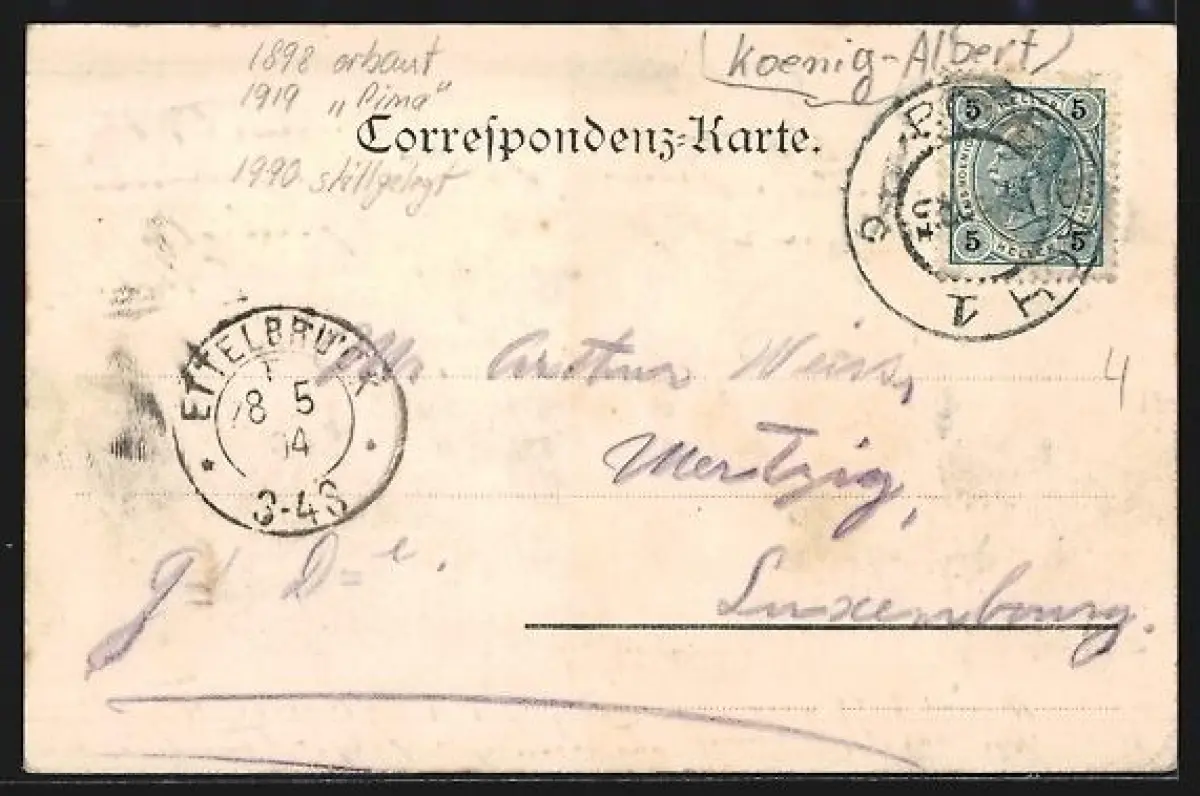 1898 erbaut
1919 „Pima"
1990 stillgelegt
(Koenig-Albert)
Correſpondenz-Karte.
5 HELLER 5
5 HELLER 5
1
ETTELBRUCK
28 5
04
3-4S
4
Arthur Weiss,
Mertzig,
Luxembourg.